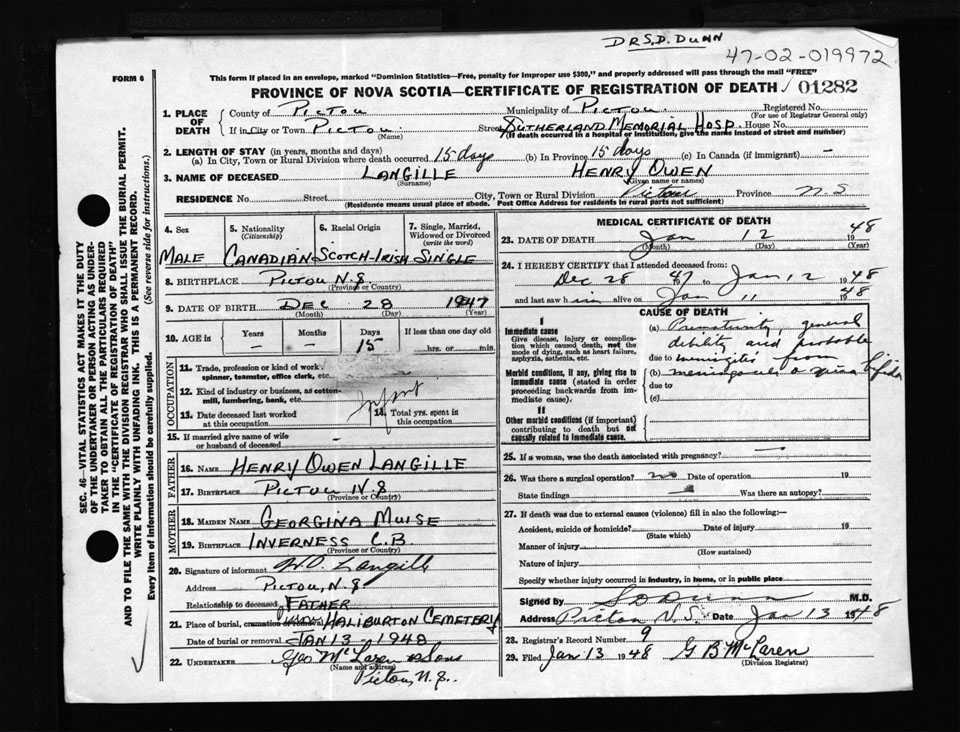 DR S. D. DUNN
47-02-019972
FORM 6
This form if placed in an envelope, marked "Dominion Statistics—Free, penalty for improper use $300," and properly addressed will pass through the mail "FREE"
PROVINCE OF NOVA SCOTIA—CERTIFICATE OF REGISTRATION OF DEATH 01282
SEC. 46—VITAL STATISTICS ACT MAKES IT THE DUTY
OF THE UNDERTAKER OR PERSON ACTING AS UNDER-
TAKER TO OBTAIN ALL THE PARTICULARS REQUIRED
IN THE "CERTIFICATE OF REGISTRATION OF DEATH"
AND TO FILE THE SAME WITH THE DIVISION REGISTRAR WHO SHALL ISSUE THE BURIAL PERMIT.
WRITE PLAINLY WITH UNFADING INK. THIS IS A PERMANENT RECORD.
Every item of information should be carefully supplied. (See reverse side for instructions.)
1. PLACE OF DEATH County of Pictou Municipality of Pictou Registered No.
(For use of Registrar General only)
If in City or Town Pictou Street Sutherland Memorial Hosp. House No.
(Name) (If death occurred in a hospital or institution, give the name instead of street and number)
2. LENGTH OF STAY (in years, months and days)
(a) In City, Town or Rural Division where death occurred 15 days (b) In Province 15 days (c) In Canada (if immigrant) —
3. NAME OF DECEASED LANGILLE HENRY OWEN
(Surname) (Given name or names)
RESIDENCE No. Street City, Town or Rural Division Pictou Province N S
(Residence means usual place of abode. Post Office Address for residents in rural parts not sufficient)
4. Sex 5. Nationality (Citizenship) 6. Racial Origin 7. Single, Married, Widowed or Divorced (write the word)
MALE CANADIAN SCOTCH-IRISH SINGLE
8. BIRTHPLACE Pictou N.S
(Province or Country)
9. DATE OF BIRTH DEC 28 1947
(Month) (Day) (Year)
10. AGE in Years Months Days If less than one day old
— — 15 hrs. or min.
OCCUPATION
11. Trade, profession or kind of work as spinner, teamster, office clerk, etc.
12. Kind of industry or business, as cotton-mill, lumbering, bank, etc. Infant
13. Date deceased last worked at this occupation 14. Total yrs. spent in this occupation
15. If married give name of wife or husband of deceased -
FATHER
16. NAME HENRY OWEN LANGILLE
17. BIRTHPLACE PICTOU N.S
(Province or Country)
MOTHER
18. MAIDEN NAME GEORGINA MUISE
19. BIRTHPLACE INVERNESS C.B.
(Province or Country)
20. Signature of informant H.O. Langille
Address PICTOU, N.S
Relationship to deceased FATHER
21. Place of burial, cremation or removal HALIBURTON CEMETERY
Date of burial or removal JAN 13 - 1948
22. UNDERTAKER Geo McLaren & Sons
(Name and address)
Pictou, N.S.
MEDICAL CERTIFICATE OF DEATH
23. DATE OF DEATH Jan 12 1948
(Month) (Day) (Year)
24. I HEREBY CERTIFY that I attended deceased from:
Dec 28 47 to Jan 12 1948
and last saw him alive on Jan 11 1948
CAUSE OF DEATH
I
Immediate cause
Give disease, injury or complication which caused death, not the mode of dying, such as heart failure, asphyxia, asthenia, etc.
(a) Prematurity, general
debility and probable
due to meningitis from
Morbid conditions, if any, giving rise to immediate cause (stated in order proceeding backwards from immediate cause).
(b) meningocele & spina bifida
due to
(c)
II
Other morbid conditions (if important) contributing to death but not causally related to immediate cause.
25. If a woman, was the death associated with pregnancy? —
26. Was there a surgical operation? no Date of operation 19
State findings — Was there an autopsy?
27. If death was due to external causes (violence) fill in also the following:—
Accident, suicide or homicide? Date of injury 19
(State which)
Manner of injury
(How sustained)
Nature of injury
Specify whether injury occurred in industry, in home, or in public place
Signed by S D Dunn M.D.
Address Pictou N.S. Date Jan 13 1948
28. Registrar's Record Number 9
29. Filed Jan 13 1948 G B McLaren
(Division Registrar)